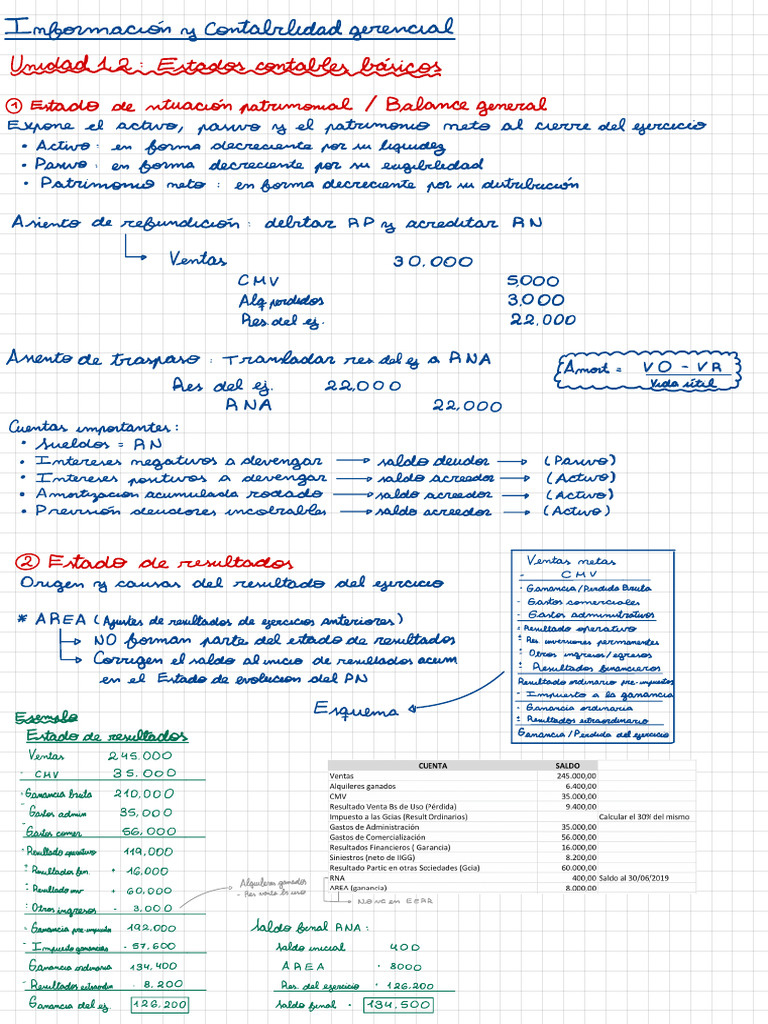 Información y Contabilidad gerencial
Unidad 1.2: Estados contables básicos
① Estado de situación patrimonial / Balance general
Expone el activo, pasivo y el patrimonio neto al cierre del ejercicio
• Activo: en forma decreciente por su liquidez
• Pasivo: en forma decreciente por su exigibilidad
• Patrimonio neto: en forma decreciente por su distribución
Asiento de refundición: debitar RP y acreditar RN
Ventas 30.000
CMV 5,000
Alq perdidos 3,000
Res. del ej. 22,000
Asiento de traspaso: Transladar res del ej a RNA
Res del ej. 22,000
RNA 22,000
Amort = VO - VR
Vida útil
Cuentas importantes:
• Sueldos = RN
• Intereses negativos a devengar → saldo deudor → (Pasivo)
• Intereses positivos a devengar → saldo acreedor → (Activo)
• Amortización acumulada rodado → saldo acreedor → (Activo)
• Previsión deudores incobrables → saldo acreedor → (Activo)
② Estado de resultados
Origen y causas del resultado del ejercicio
* AREA (Ajustes de resultados de ejercicios anteriores)
NO forman parte del estado de resultados
Corrigen el saldo al inicio de resultados acum
en el Estado de evolucion del PN
Esquema
Ventas netas
- CMV
• Ganancia/Perdida Bruta
- Gastos comerciales
- Gastos administrativos
• Resultado operativo
± Res. inversiones permanentes
± Otros ingresos/egresos
± Resultados financieros
Resultado ordinario pre-impuestos
- Impuesto a la ganancia
• Ganancia ordinaria
± Resultados extraordinario
Ganancia/Perdida del ejercicio
Ejemplo
Estado de resultados
Ventas 245.000
- CMV 35.000
• Ganancia bruta 210,000
Gastos admin 35,000
Gastos comer 56,000
• Resultado operativo 119,000
± Resultados fin. + 16,000
± Resultado inv + 60,000
± Otros ingresos - 3,000
• Ganancia pre-impuesto 192,000
- Impuesto ganancias - 57,600
Ganancia ordinaria 134,400
- Resultados extraordin - 8.200
Ganancia del ej. 126,200
Alquileres ganados
- Res venta bs uso
CUENTA SALDO
Ventas 245.000,00
Alquileres ganados 6.400,00
CMV 35.000,00
Resultado Venta Bs de Uso (Pérdida) 9.400,00
Impuesto a las Gcias (Result Ordinarios) Calcular el 30% del mismo
Gastos de Administración 35.000,00
Gastos de Comercialización 56.000,00
Resultados Financieros ( Garancia) 16.000,00
Siniestros (neto de IIGG) 8.200,00
Resultado Partic en otras Sociedades (Gcia) 60.000,00
RNA 400,00 Saldo al 30/06/2019
AREA (ganancia) 8.000,00
No va en EERR
Saldo final RNA:
Saldo inicial 400
AREA + 8000
Res. del ejercicio + 126,200
Saldo final = 134,500